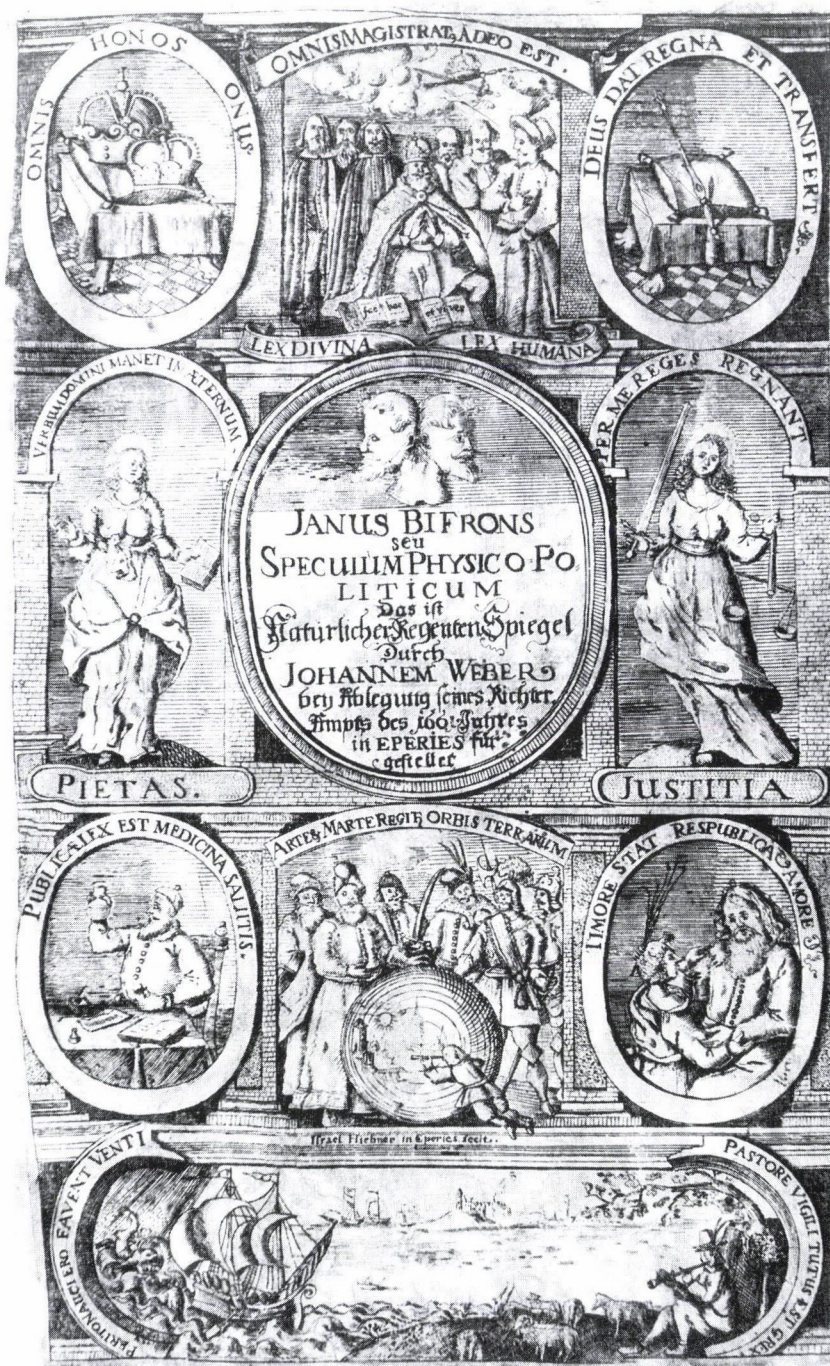 OMNIS HONOS ONUS.
OMNIS MAGISTRAT9 A DEO EST.
DEUS DAT REGNA ET TRANSFERT
fec hoc et vives
LEX DIVINA LEX HUMANA
VERBUM DOMINI MANET IN ÆTERNUM
PER ME REGES REGNANT
JANUS BIFRONS
seu
SPECULUM PHYSICO-PO
LITICUM
Das ist
Natürlicher Regenten Spiegel
Durch
JOHANNEM WEBER
bey Ablegung seines Richter.
Ampts des 1661 Jahres
in EPERIES für
gestellet
PIETAS.
JUSTITIA
PUBLICA LEX EST MEDICINA SALUTIS.
ARTE & MARTE REGIT ORBIS TERRARUM
TIMORE STAT RESPUBLICA & AMORE
Israel Hiebner in Eperies fecit.
FAVENT VENTI
PASTORE VIGILI TUTUS EST GREX